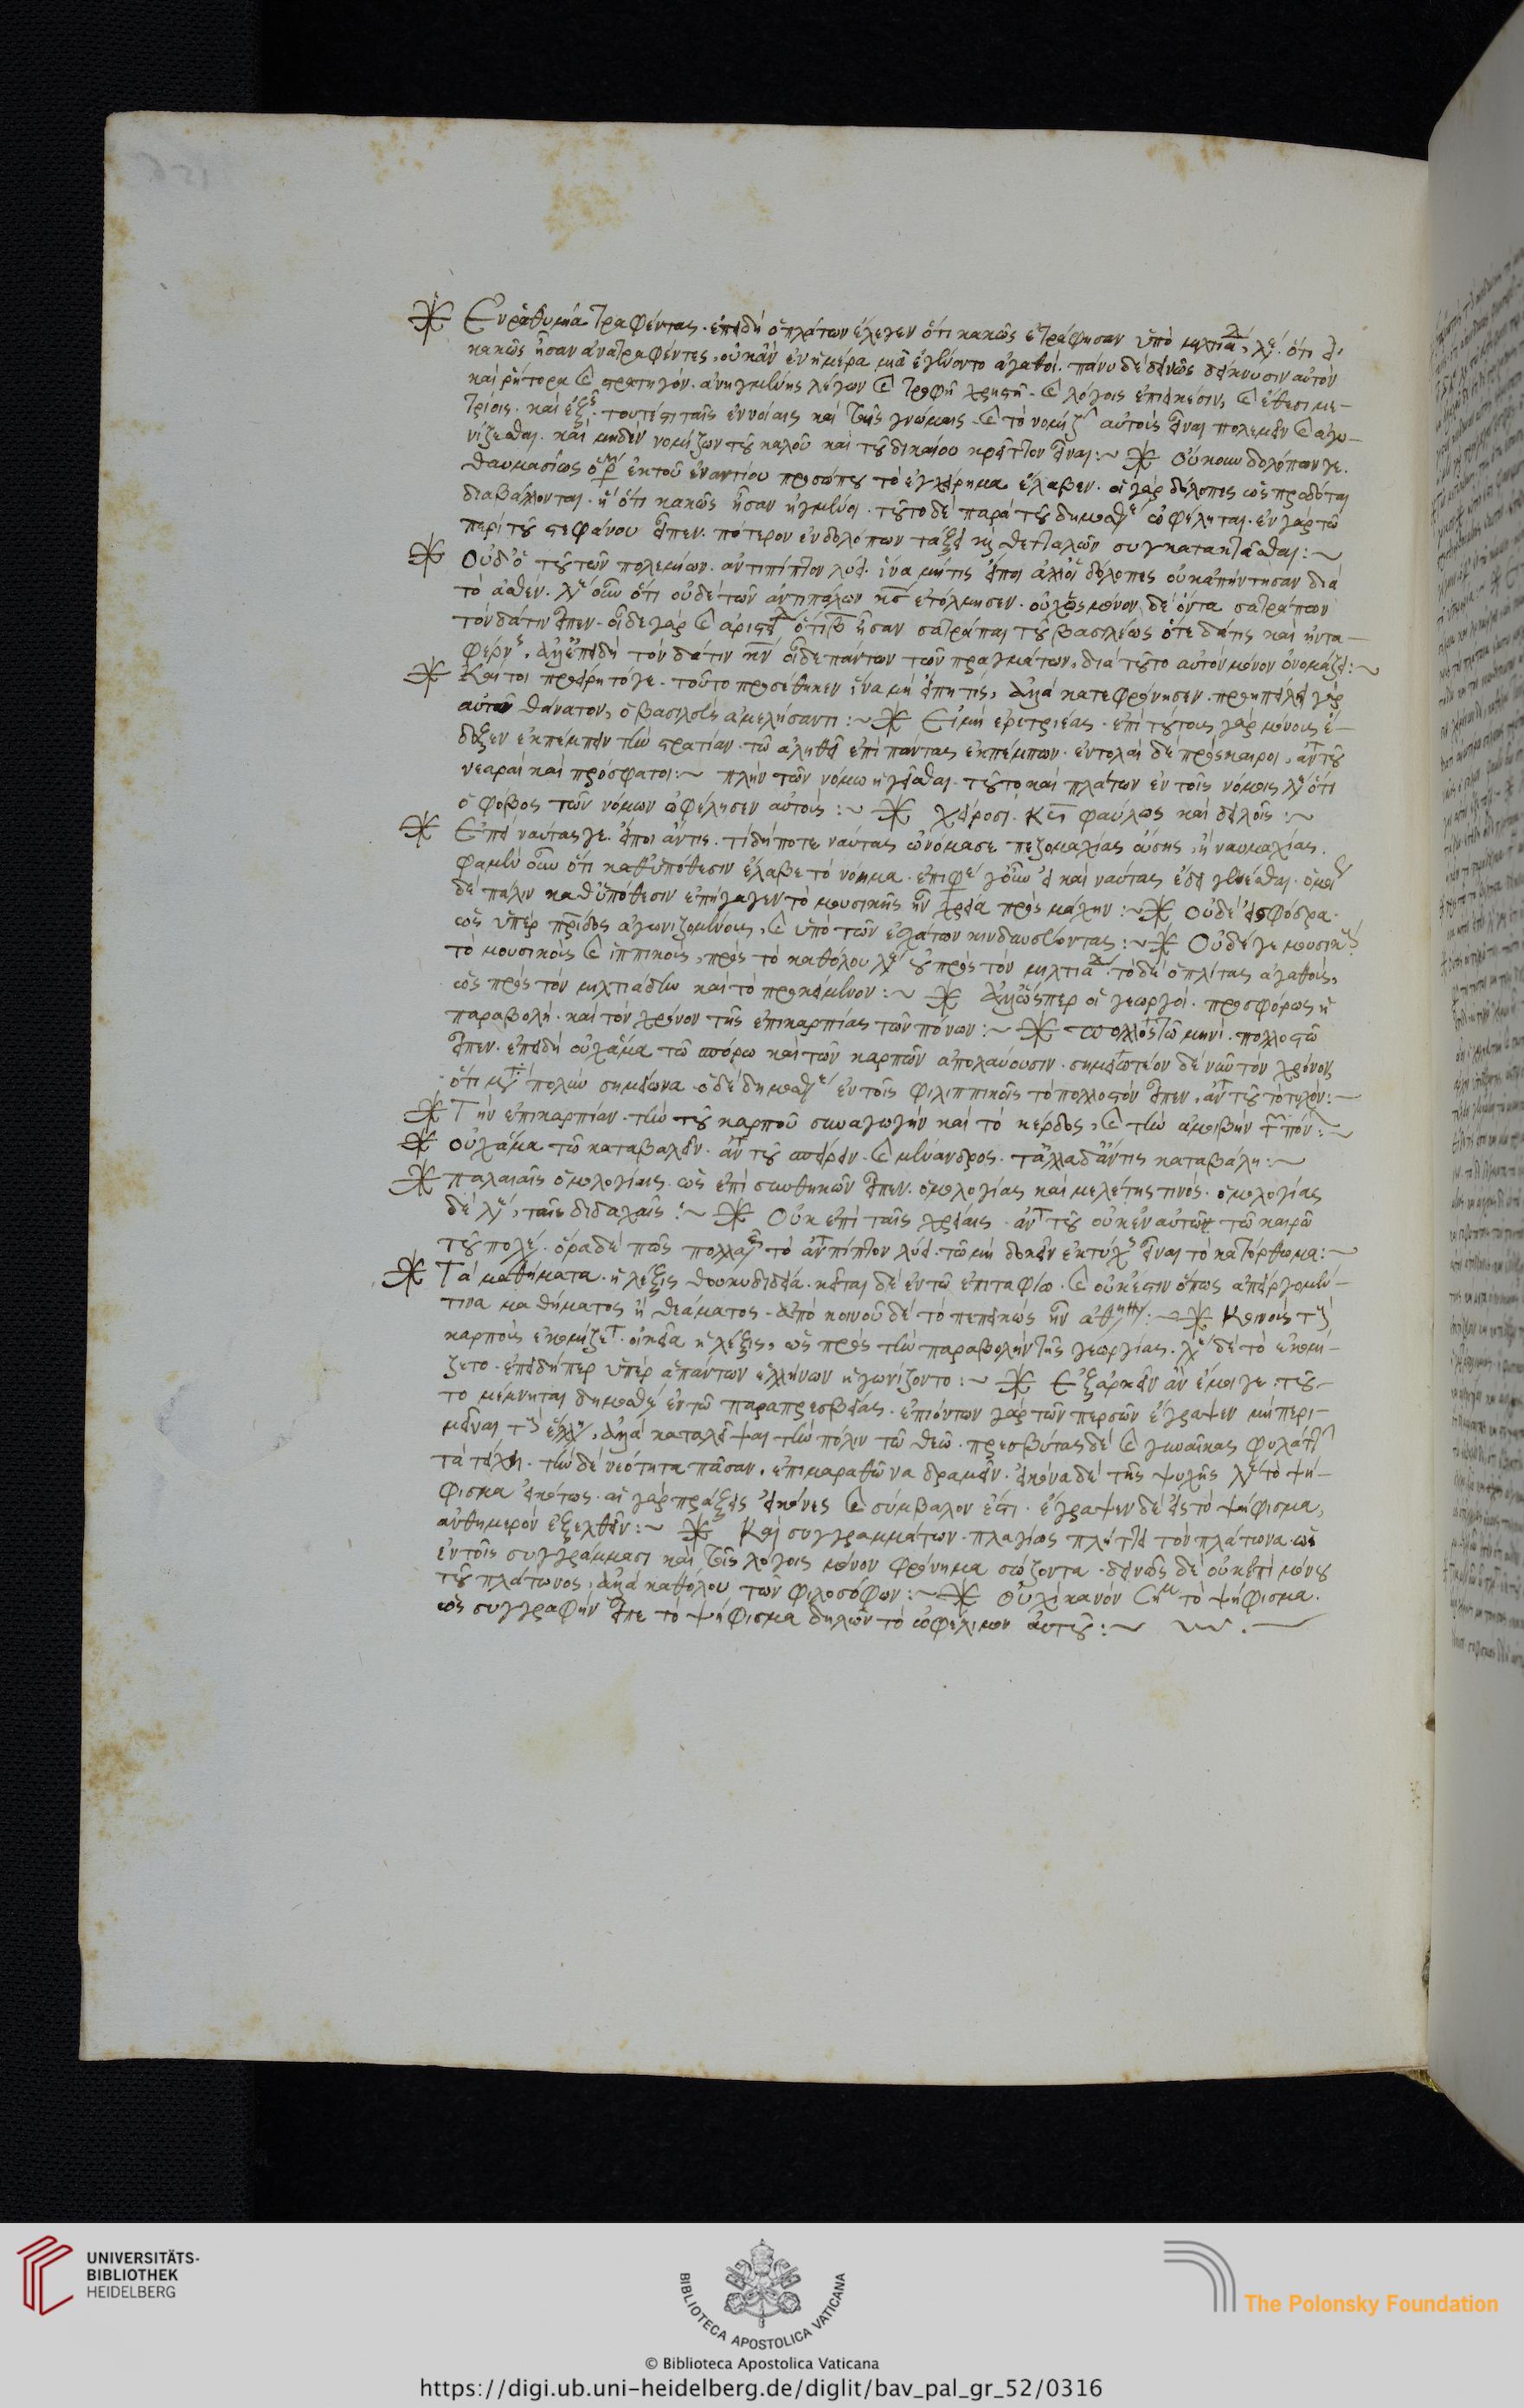 Ἐν ῥαθυμία τραφέντας. ἐπειδὴ ὁ πλάτων ἔλεγεν ὅτι κακῶς ἐτράφησαν ὑπὸ μιλτιά, λέ. ὅτι εἰ
κακῶς ἦσαν ἀνατραφέντες, οὐκ ἂν ἐν ἡμέρα μιᾶ ἐγίνοντο ἀγαθοί. πάνυ δὲ δεινῶς δείκνυσιν αὐτὸν
καὶ ῥήτορα καὶ στρατηγόν. λέγων καὶ τροφῆ χρηστῆ. καὶ λόγοις ἐπιεικέσιν, καὶ ἔθεσι με-
τρίοις. καὶ ἑξ. τουτέστι ταῖς ἐννοίαις καὶ ταῖς γνώμαις. καὶ τὸ νομίζ αὐτοὺς εἶναι πολεμεῖν καὶ ἀγω-
νίζεσθαι. καὶ μηδὲν νομίζων τοῦ καλοῦ καὶ τοῦ δικαίου κρεῖττον εἶναι :~ Οὔκουν δολόπων γε.
θαυμασίως ἐκ τοῦ ἐναντίου προσώπου τὸ ἐγχείρημα ἔλαβεν. οἱ γὰρ δόλοπες ὡς προδόται
διαβάλλονται. ἢ ὅτι κακῶς ἦσαν ἠγμένοι. τοῦτο δὲ παρὰ τοῦ δημοσθέ ὠφέληται. ἐν γὰρ τῶ
περὶ τοῦ στεφάνου εἶπεν. πότερον ἐν δολόπων τάξει καὶ θετταλῶν συγκατατάττεσθαι :~
Οὐδ' ὁ τοῦ τῶν πολεμίων. ἀντιπίπτον λύει. ἵνα μή τις εἴποι ἀλλ' οἱ δόλοπες οὐκ ἀπήντησαν διὰ
τὸ ἀσθέν. λέ οὖν ὅτι οὐδὲ τῶν ἀντιπάλων ἐτόλμησεν. μόνον δὲ ὄντα σατράπων
τὸν δάτιν εἶπεν. οἶδε γὰρ καὶ ἀριστεί ὅτι β ἦσαν σατράπαι τοῦ βασιλέως ὅτε δάτις καὶ ἀντα-
φέρν, ἀλλ' ἐπειδὴ τὸν δάτιν οἶδε πάντων τῶν πραγμάτων, διὰ τοῦτο αὐτὸν μόνον ὀνομάζει :~
Καίτοι προείρητό γε. τοῦτο προσέθηκεν ἵνα μὴ εἴπη τίς, ἀλλὰ κατεφρόνησεν. προηπείλει γὰρ
αὐτῶ θάνατον, ὁ βασιλεὺς ἀμελήσαντι :~ Εἰ μὴ ἐρετριέας. ἐπὶ τούτους γὰρ μόνους ἔ-
δοξεν ἐκπέμπειν τὴν στρατίαν. τῶ ἀληθεῖ ἐπὶ πάντας ἐκπέμπων. ἐντολαὶ δὲ πρόσκαιροι, ἀντὶ τοῦ
νεαραὶ καὶ πρόσφατοι :~ πλὴν τῶν νόμω ἡγεῖσθαι. τοῦτο καὶ πλάτων ἐν τοῖς νόμοις λέ ὅτι
ὁ φόβος τῶν νόμων ὠφέλησεν αὐτούς :~ χείροσι. φαύλως καὶ δειλοῖς :~
Ἐπεὶ ναύτας γε. εἴποι ἄν τις. τί δήποτε ναύτας ὠνόμασε πεζομαχίας οὔσης, ἢ ναυμαχίας.
φαμὲν οὖν ὅτι καθ' ὑπόθεσιν ἔλαβε τὸ νόημα. εἰ καὶ ναύτας ἔδει γενέσθαι. ὁμοί
δὲ πάλιν καθ' ὑπόθεσιν ἐπήγαγεν τὸ μουσικῆς ἦν χρεία πρὸς μάχην :~ Οὐδὲ εἰ σφόδρα.
ὡς ὑπὲρ πατρίδος ἀγωνιζομένους, καὶ ὑπὸ τῶν ἐσχάτων κινδυνεύοντας :~ Οὐδέ γε μουσικ
τὸ μουσικοὺς καὶ ἱππικοὺς, πρὸς τὸ καθόλου λέ οὐ πρὸς τὸν μιλτιά. τὸ δὲ ὁπλίτας ἀγαθοὺς,
ὡς πρὸς τὸν μιλτιάδην καὶ τὸ προκείμενον :~ Ἀλλ' ὥσπερ οἱ γεωργοί. προσφόρως ἡ
παραβολή. καὶ τὸν χρόνον τῆς ἐπικαρπίας τῶν πόνων :~ πολλοστῶ μηνί. πολλοστῶ
εἶπεν. ἐπειδὴ οὐχ ἅμα τῶ σπόρω καὶ τῶν καρπῶν ἀπολαύουσιν. σημειωτέον δὲ νῦν τὸν χρόνον
ὅτι πολὺν σημαίνει. ὁ δὲ δημοσθέ ἐν τοῖς φιλιππικοῖς τὸ πολλοστὸν εἶπεν, ἀντὶ τοῦ τὸ τυχόν :~
Τὴν ἐπικαρπίαν. τὴν τοῦ καρποῦ συναγωγὴν καὶ τὸ κέρδος, καὶ τὴν ἀμοιβὴν τῶν πόν :~
Οὐχ ἅμα τῶ καταβαλεῖν. ἀντὶ τοῦ σπείρειν. καὶ μένανδρος. τἄλλα δ' ἄν τις καταβάλη :~
παλαιαῖς ὁμολογίαις. ὡς ἐπὶ συνθηκῶν εἶπεν. ὁμολογίας καὶ μελέτης τινός. ὁμολογίας
δὲ λέ, ταῖς διδαχαῖς :~ Οὐκ ἐπὶ ταῖς χρείαις. ἀντὶ τοῦ οὐκ ἐν αὐτῶ τῶ καιρῶ
τοῦ πολέ. ὅρα δὲ πῶς πολλαχῶς τὸ ἀντιπίπτον λύει. τῶ μὴ δοκεῖν ἐκ τύχης εἶναι τὸ κατόρθωμα :~
Τὰ μαθήματα. ἡ λέξις θουκυδιδεία. κεῖται δὲ ἐν τῶ ἐπιταφίω. καὶ οὐκ ἔστιν ὅπως ἀπειργομέν-
τινα μαθήματος ἢ θεάματος. ἀπὸ κοινοῦ δὲ τὸ πεπεικὼς ἦν :~ Κοινοὺς τοὺς
καρποὺς ἐκομίζετ. οἰκεία ἡ λέξις, ὡς πρὸς τὴν παραβολὴν τῆς γεωργίας. λέ δὲ τὸ ἐκομί-
ζετο. ἐπειδήπερ ὑπὲρ ἁπάντων ἑλλήνων ἠγωνίζοντο :~ Ἐξαρκεῖν ἂν ἔμοιγε. τού-
του μέμνηται δημοσθέ ἐν τῶ παραπρεσβείας. ἐπιόντων γὰρ τῶν περσῶν ἔγραψεν μὴ περι-
μεῖναι τοὺς ἕλλη, ἀλλὰ καταλεῖψαι τὴν πόλιν τῶ θεῶ. πρεσβύτας δὲ καὶ γυναῖκας φυλάττ
τὰ τείχη. τὴν δὲ νεότητα πᾶσαν, ἐπὶ μαραθῶνα δραμεῖν. εἰκόνα δὲ τῆς ψυχῆς λέ τὸ ψή-
φισμα εἰκότως. αἱ γὰρ πράξεις εἰκόνες καὶ σύμβολον ἐστι. ἔγραψεν δὲ εἰς τὸ ψήφισμα,
αὐθημερὸν ἐξελθεῖν :~ Καὶ συγγραμμάτων. πλαγίως πλήττει τὸν πλάτωνα. ὡς
ἐν τοῖς συγγράμμασι καὶ τοῖς λόγοις μόνον φρόνημα σώζοντα. δεινῶς δὲ οὐκέτι μόνου
τοῦ πλάτωνος, ἀλλὰ καθόλου τῶν φιλοσόφων :~ Οὐχ ἱκανὸν τὸ ψήφισμα.
ὡς συγγραφὴν εἶπε τὸ ψήφισμα δηλῶν τὸ ὠφέλιμον αὐτοῦ :~
UNIVERSITÄTS-
BIBLIOTHEK
HEIDELBERG
BIBLIOTECA APOSTOLICA VATICANA
The Polonsky Foundation
© Biblioteca Apostolica Vaticana
https://digi.ub.uni-heidelberg.de/diglit/bav_pal_gr_52/0316